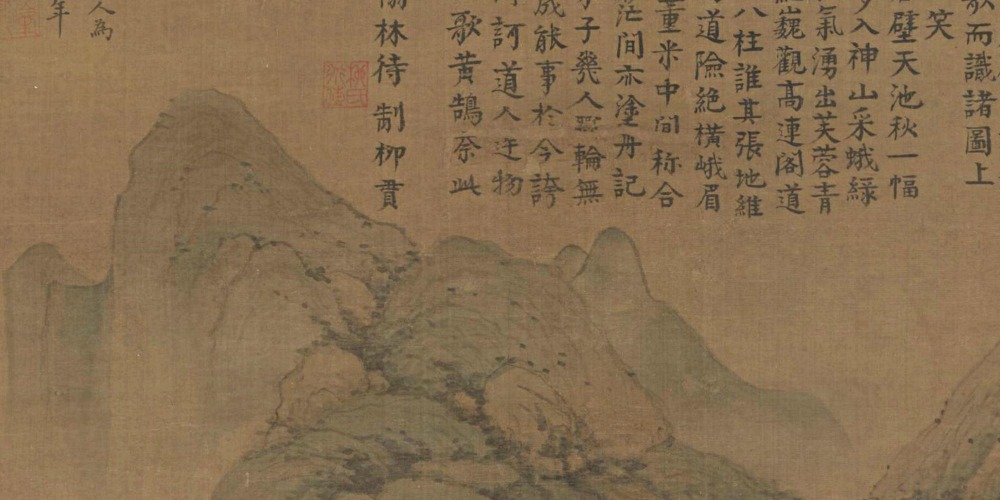 而識諸圖上
笑
壁天池秋一幅
入神山采蛾綠
氣湧出芙蓉青
巍觀高連閣道
八柱誰其張地維
道險絕橫峨眉
重米中間称合
茫間亦塗丹記
子幾人斲輪無
成能事於今誇
訶道人迕物
歌黃鵠奈此
林待制柳貫
人為
年